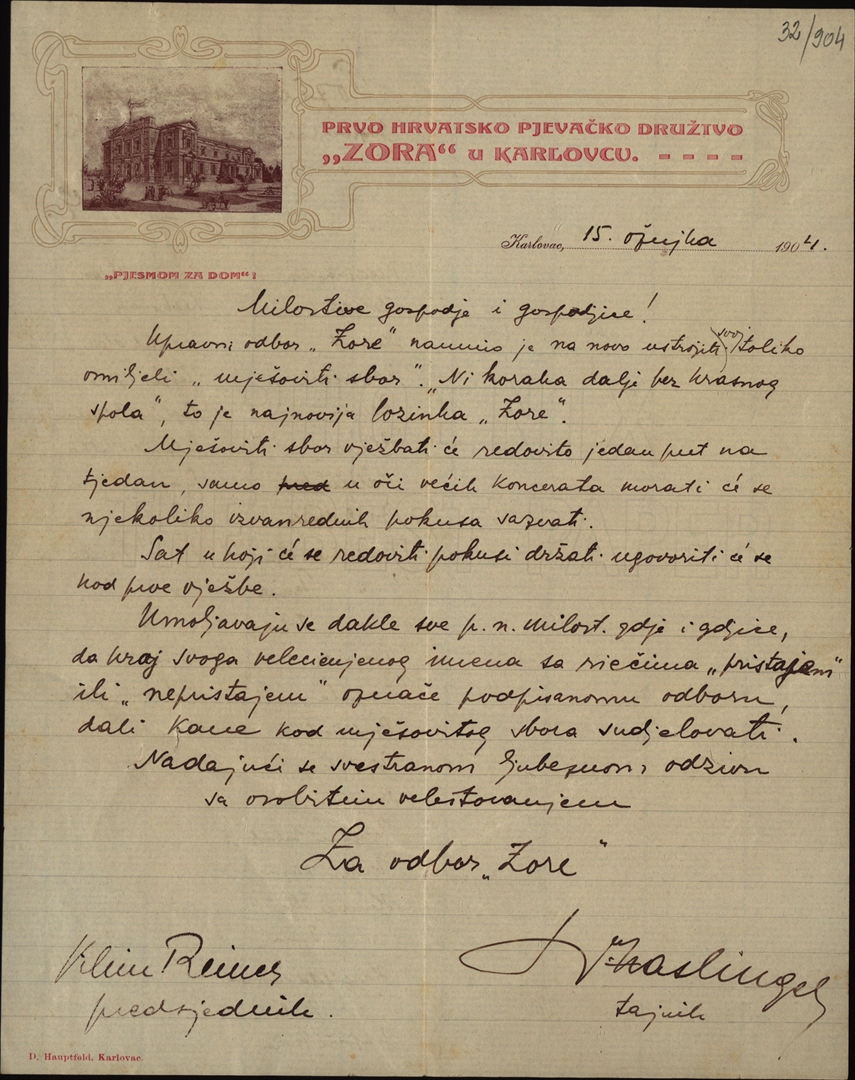 32/904
PRVO HRVATSKO PJEVAČKO DRUŽTVO
„ZORA“ U KARLOVCU.
Karlovac, 15. ožujka 1904.
„PJESMOM ZA DOM“!
Milostive gospodje i gospodjice!
Upravni odbor „Zore“ naumio je na novo ustrojiti svoj toliko
omiljeli „mješoviti sbor“. „Ni koraka dalje bez krasnog
spola“, to je najnovija lozinka „Zore“.
Mješoviti sbor vježbati će redovito jedan put na
tjedan, samo pred u oči većih koncerata morati će se
njekoliko izvanrednih pokusa sazvati.
Sat u koji će se redoviti pokusi držati ugovoriti će se
kod prve vježbe.
Umoljavaju se dakle sve p. n. milost. gdje i gdjice,
da kraj svoga velecienjenog imena sa riečima „pristajem“
ili „nepristajem“ označe podpisanomu odboru,
dali kane kod mješovitog sbora sudjelovati.
Nadajući se svestranom ljubeznom odzivu
sa osobitim veleštovanjem
Za odbor „Zore“
predsjednik.
tajnik
D. Hauptfeld, Karlovac.